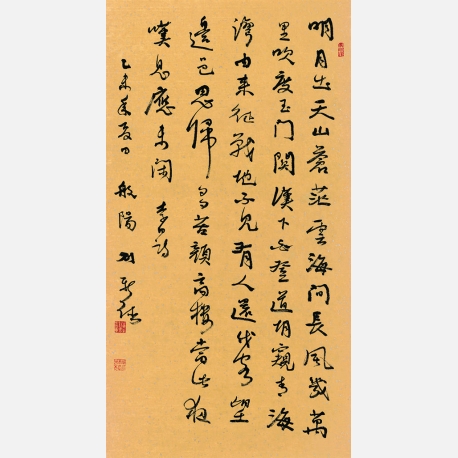 明月出天山蒼茫雲海間長風幾萬
里吹度玉門関漢下白登道胡窺青海
灣由来征戰地不見有人還戍客望
邊色思歸多苦顏高樓當此夜
嘆息應未閑 李白詩
乙未年夏日 般陽 刘